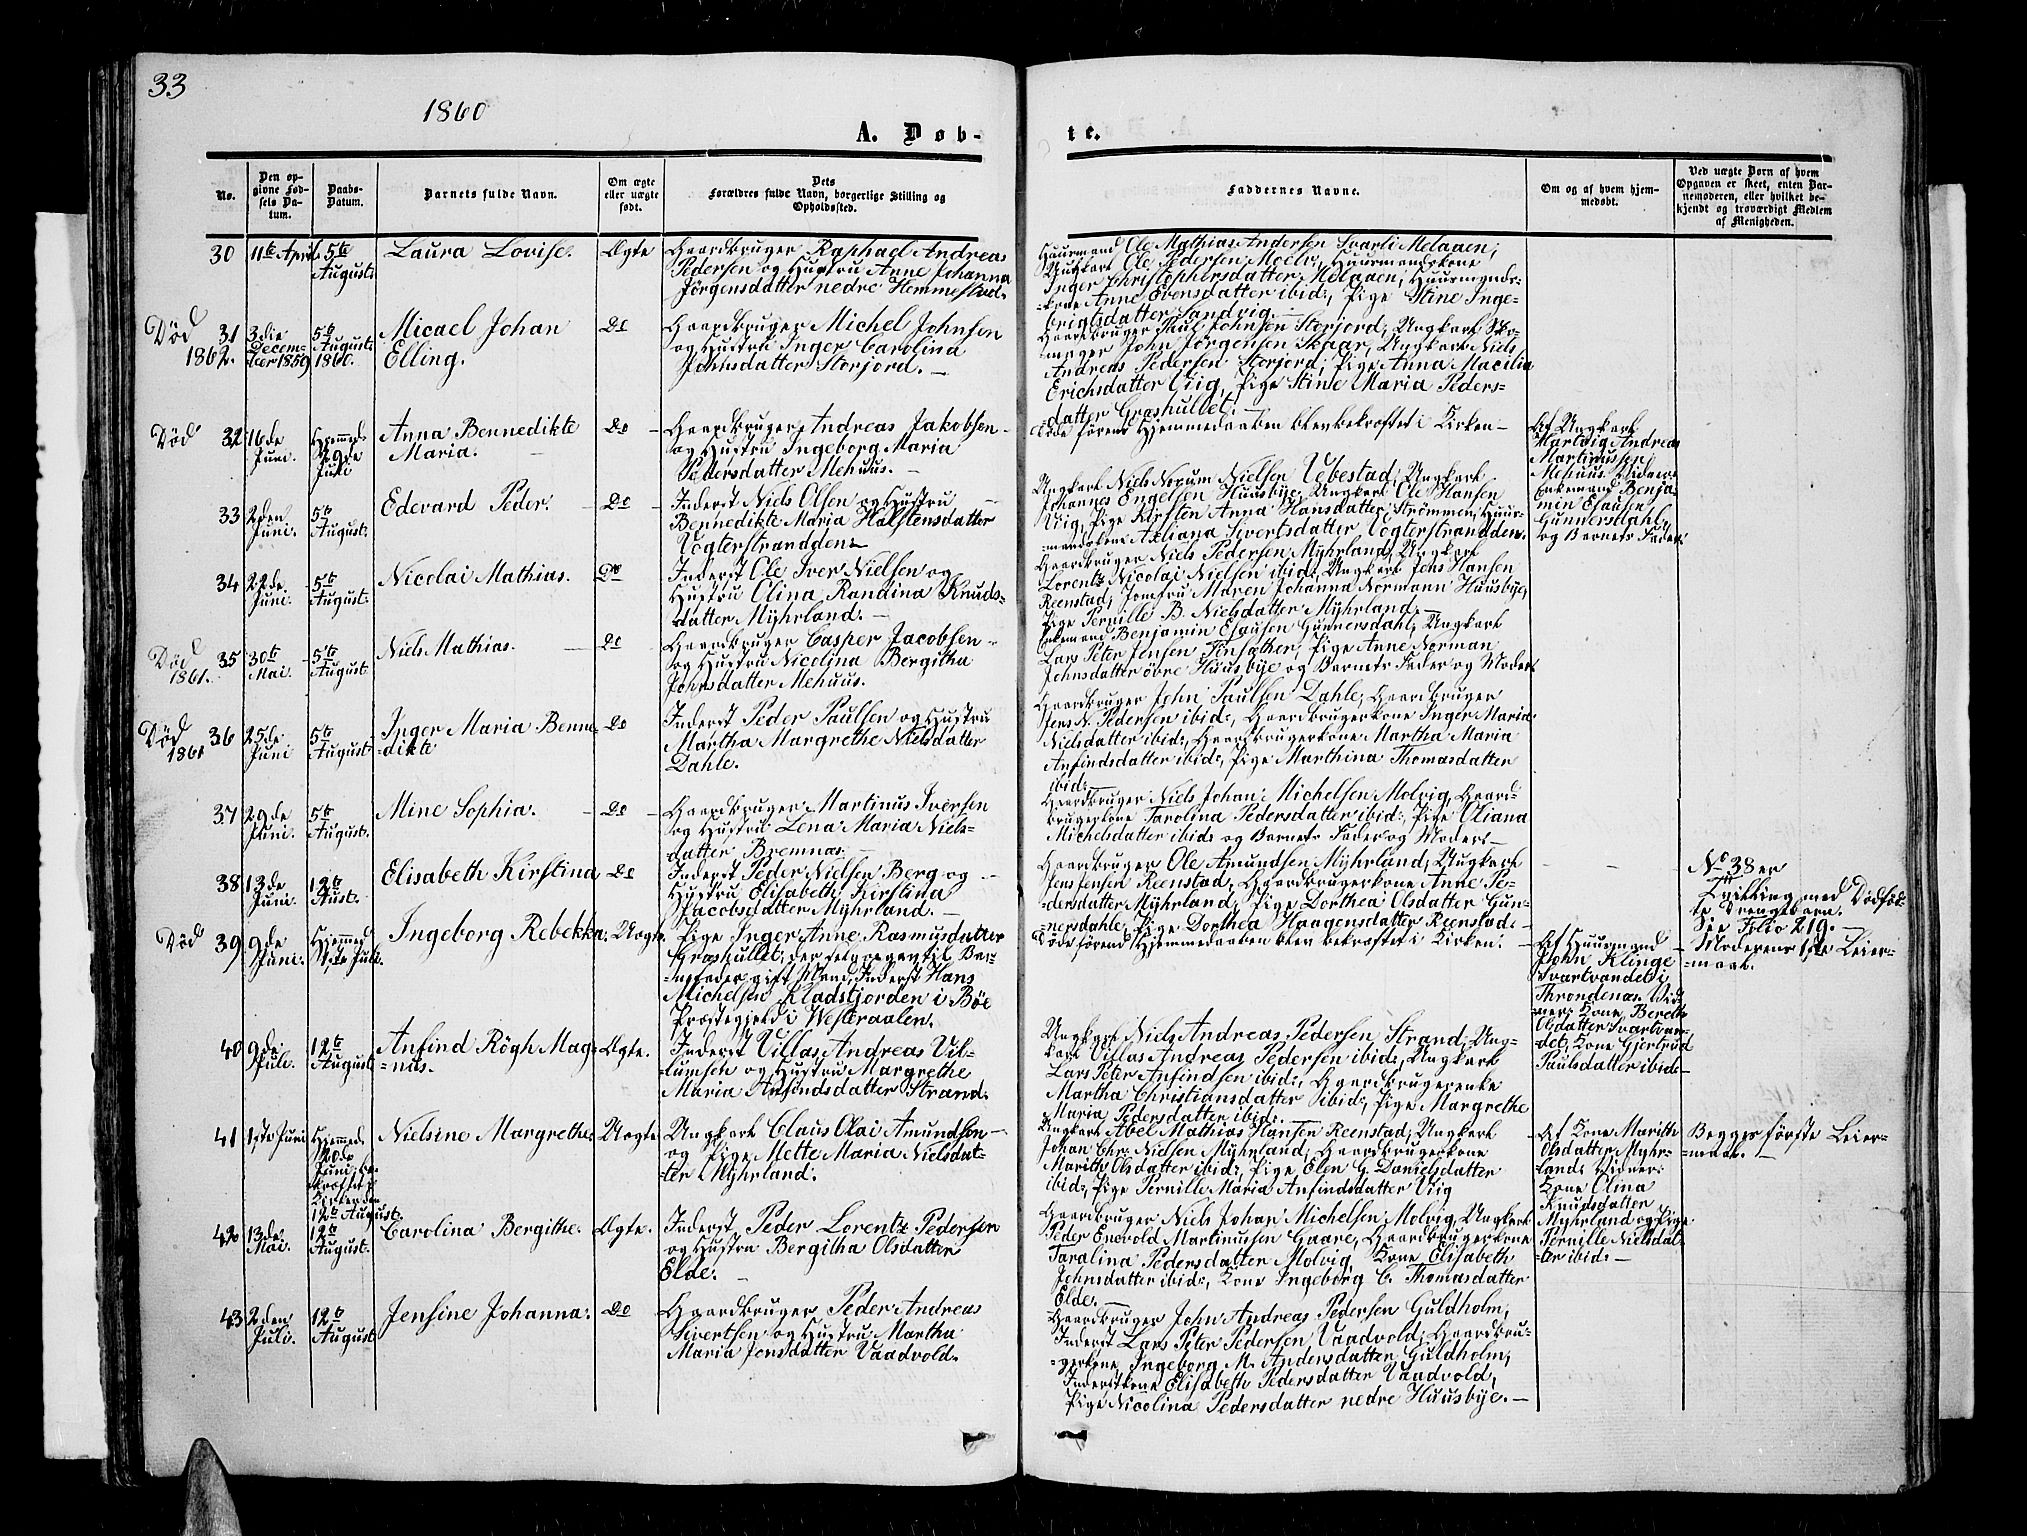 33
1860
A. Døb-
te.
No.
Den opgivne Fødsels Datum.
Daabs-Datum.
Barnets fulde Navn.
Om ægte eller uægte født.
Dets Forældres fulde Navn, borgerlige Stilling og Opholdssted.
Faddernes Navne.
Om og af hvem hjemmedøbt.
Ved uægte Børn af hvem Opgaven er skeet, enten Barnemoderen, eller hvilket bekjendt og troværdigt Medlem af Menigheden.
30 11te April 5te August Laura Lovise. Ægte Gaardbruger Raphael Andreas
Pedersen og Hustru Anne Johanna
Jörgensdatter nedre Hemmestad.
Huusmand Ole Mathias Andersen Svarti Melaaen,
Ungkarl Ole Pedersen Moelv, Huusmandskone
Inger Christophersdatter Melaaen, Huusmands-
kone Anne Evensdatter ibid:, Pige Stine Inge-
brigtsdatter Sandvig.
Död 1862. 31 3die December 1859 5te August 1860. Micael Johan
Elling.
Do Gaardbruger Michel Johnsen
og Hustru Inger Carolina
Johnsdatter Storjord. —
Gaardbruger Paul Johnsen Storjord, Ungkarl
John Jörgensen Skaar, Ungkarl Niels
Andreas Pedersen Storjord, Pige Anna Macilia
Erichsdatter Viig, Pige Stine Maria Peders-
datter Græshullet.
Död 32 16de Juni. Hjemmed. 29de Juni Anna Bennedikte
Maria.
Do Gaardbruger Andreas Jakobsen
og Hustru Ingeborg Maria
Pedersdatter Mehuus. —
Hjemmedaaben blev bekræftet i Kirken —
Af Ungkarl
Hartvig Andreas
Martinussen
Mehuus. Vidner:
Enkemand Benja-
min Esausen
Gunnersdahl,
og Barnets Fader.
33 2den Juni. 5te August. Edevard Peder.
Do Inderst Niels Olsen og Hustru
Bennedikte Maria Halstensdatter
Vogterstrandden.
Ungkarl Niels Norum Nielsen Vebestad, Ungkarl
Johannes Engelsen Huusbye, Ungkarl Ole Hansen
Viig, Pige Kirsten Anna Hansdatter, Strömmen, Huus-
mandskone Axliana Sivertsdatter Vogterstrandden.
34 22de Juni. 5te August. Nicolai Mathias.
Do Inderst Ole Iver Nielsen og
Hustru Olina Randina Knuds-
datter Myhrland. —
Gaardbruger Niels Pedersen Myhrland, Ungkarl
Lorentz Nicolai Nielsen ibid:, Ungkarl Jens Hansen
Reenstad, Jomfru Maren Johanna Normann Huusbye,
Pige Pernille B. Nielsdatter Myhrland. —
Död 1861. 35 30te Mai. 5te August Niels Mathias.
Do Gaardbruger Casper Jacobsen
og Hustru Nicolina Bergitha
Johnsdatter Mehuus.
Enkemand Benjamin Esausen Gunnersdahl, Ungkarl
Lars Peter Jensen Finsæther, Pige Anne Norman
Johnsdatter övre Huusbye og Barnets Fader og Moder.
Död 1861 36 25de Juni 5te August Inger Maria Benne-
dikte
Do Inderst Peder Paulsen og Hustru
Martha Margrethe Nielsdatter
Dahle.
Gaardbruger John Paulsen Dahle, Gaardbruger
Jens N. Pedersen ibid:, Gaardbrugerkone Inger Maria
Nielsdatter ibid:, Gaardbrugerkone Martha Maria
Anfindsdatter ibid:, Pige Marthina Thomasdatter
ibid:
37 29de Juni. 5te August. Mine Sophia.
Do Gaardbruger Martinus Iversen
og Hustru Lena Maria Niels-
datter Bremnæs. —
Gaardbruger Niels Johan Michelsen Molvig, Gaard-
brugerkone Taralina Pedersdatter ibid:, Pige Oliana
Michelsdatter ibid: og Barnets Fader og Moder. —
38 13de Juni. 12te Aust. Elisabeth Kirstina
Do Inderst Peder Nielsen Berg og
Hustru Elisabeth Kirstina
Jacobsdatter Myhrland. —
Gaardbruger Ole Amundsen Myhrland, Ungkarl
Jens Jensen Reenstad, Gaardbrugerkone Anne Pe-
dersdatter Myhrland, Pige Dorthea Olsdatter Gun-
nersdahle, Pige Dorthea Haagensdatter Reenstad.
No 38 er
Tvilling med Dödföd-
te Drengebarn.
See Folio 219. —
Död 39 9de Juni. Hjemmed. 1ste Juli. Ingeborg Rebekka.
Uægte. Pige Inger Anne Rasmusdatter
Græshullet, der selv opgivet Bar-
nefader gift Mand, Inderst Hans
Michelsen Kladstjorden i Böe
Præstegjeld i Westeraalen.
Hjemmedaaben blev bekræftet i Kirken. —
Af Huusmand
John Klinge
Svartvandet i
Throndenæs. Vid-
ner: Kone Bereth
Olsdatter Svartvan-
det, Kone Giertrud
Paulsdatter ibid. —
Moderens 1ste Leier-
maal.
40 9de Juli. 12te August Anfind Rögh Mag-
nus.
Ægte. Inderst Villas Andreas Vil-
lumsen og Hustru Margrethe
Maria Anfindsdatter Strand.
Ungkarl Niels Andreas Pedersen Strand, Ung-
karl Villas Andreas Pedersen ibid:, Ungkarl
Lars Peter Anfindsen ibid:, Gaardbrugerenke
Martha Christiansdatter ibid:, Pige Margrethe
Maria Pedersdatter ibid:
41 1ste Juni Hjemmed. 20de Juni, bekræftet i Kirken den 12te August. Nielsine Margrethe.
Uægte Ungkarl Claus Olai Amundsen
og Pige Mette Maria Nielsdat-
ter Myhrland.
Ungkarl Abel Mathias Hansen Reenstad, Ungkarl
Johan Chr. Nielsen Myhrland, Gaardbrugerkone
Marith Olsdatter ibid:, Pige Elen G. Danielsdatter
ibid:, Pige Pernille Maria Anfindsdatter Viig
Af Kone Marith
Olsdatter Myhr-
land. Vidner:
Kone Olina
Knudsdatter
Myhrland og Pige
Pernille Nielsdat-
ter ibid. —
Begges förste Leier-
maal. —
42 13de Mai. 12te August. Carolina Bergithe.
Ægte. Inderst Peder Lorentz Pedersen
og Hustru Bergitha Olsdatter
Elde. —
Gaardbruger Niels Johan Michelsen Molvig, Ungkarl
Peder Enevold Martinussen Gaare, Gaardbrugerkone
Taralina Pedersdatter Molvig, Kone Elisabeth
Johnsdatter ibid:, Kone Ingeborg C. Thomasdatter
Elde. —
43 2den Juli. 12te August Jensine Johanna.
Do Gaardbruger Peder Andreas
Sivertsen og Hustru Martha
Maria Jensdatter Vaadvold.
Gaardbruger John Andreas Pedersen Guldholm,
Inderst Lars Peter Pedersen Vaadvold, Gaardbru-
gerkone Ingeborg M. Andersdatter Guldholm,
Inderstkone Elisabeth Pedersdatter Vaadvold,
Pige Nicolina Pedersdatter nedre Huusbye. —